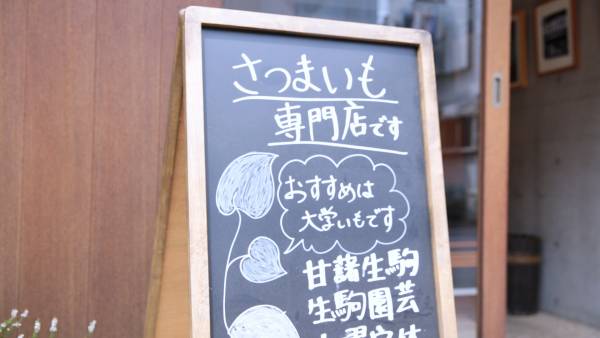 さつまいも
専門店です
おすすめは
大学いもです
甘藷生駒
生駒園芸